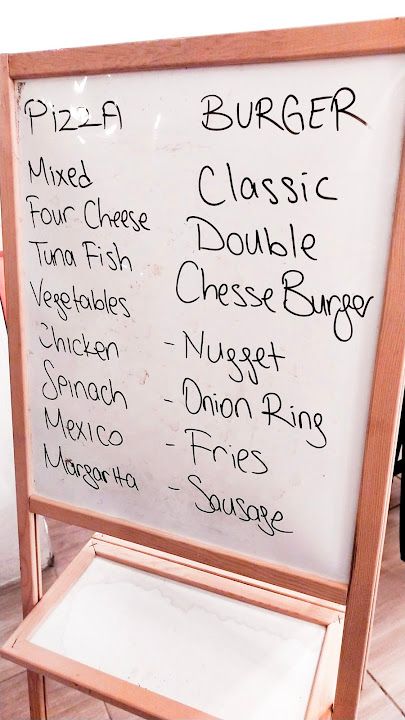 PizzA
Mixed
Four Cheese
Tuna Fish
Vegetables
Chicken
Spinach
Mexico
Margarita
BURGER
Classic
Double
Chesse Burger
- Nugget
- Onion Ring
- Fries
- Sausage